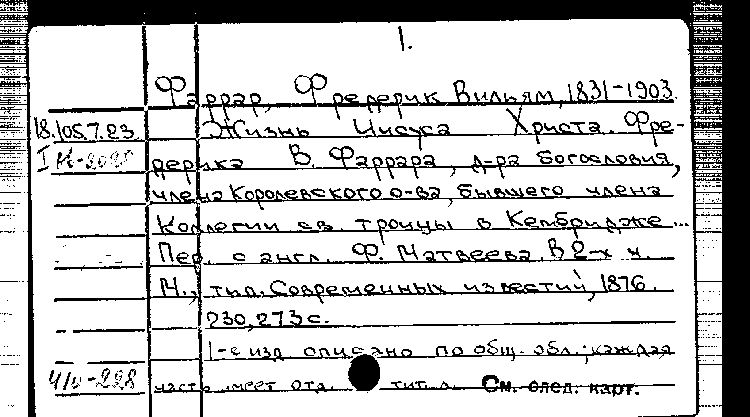 1.
Фаррар, Фредерик Вильям, 1831-1903.
18.105.7.23 Жизнь Иисуса Христа. Фре-
дерика В. Фаррара, д-ра богословия,
члена Королевского о-ва, бывшего члена
Коллегии св. троицы в Кембридже...
Пер. с англ. Ф. Матвеева. В 2-х ч.
М., тип. Современных известий, 1876.
230, 273 с.
1-е изд. описано по общ. обл.; каждая
часть имеет отд. тит. л. См. след. карт.